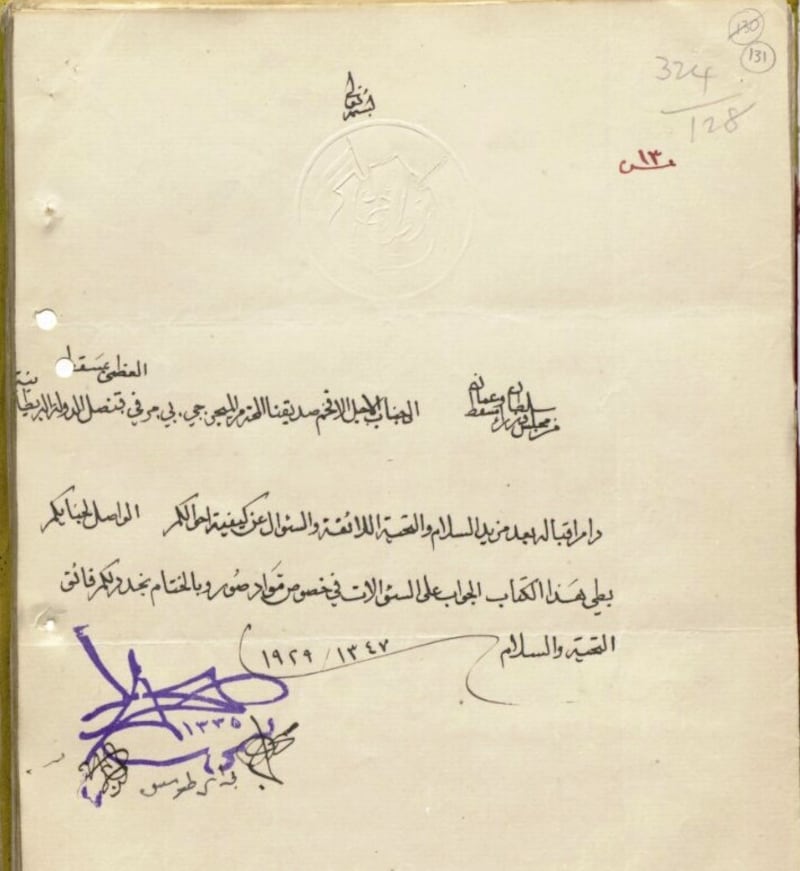 130
131
324
128
١٣
بسمه تعالى
من مجلس وزراء
سلطان مسقط وعمان
الجناب الاجل الافخم صديقنا المحترم الميجر جي. بي. مرفي قنصل الدولة البريطانية
العظمى بمسقط
دام اقباله بعد مزيد السلام والتحية اللائقة والسئوال عن كيفية احوالكم الواصل لجنابكم
بطي هذا الكتاب الجواب على السئوالات في خصوص مواد صور وبالختام نجدد لكم فائق
التحية والسلام
١٣٤٧ / ١٩٢٩
١٣٣٥